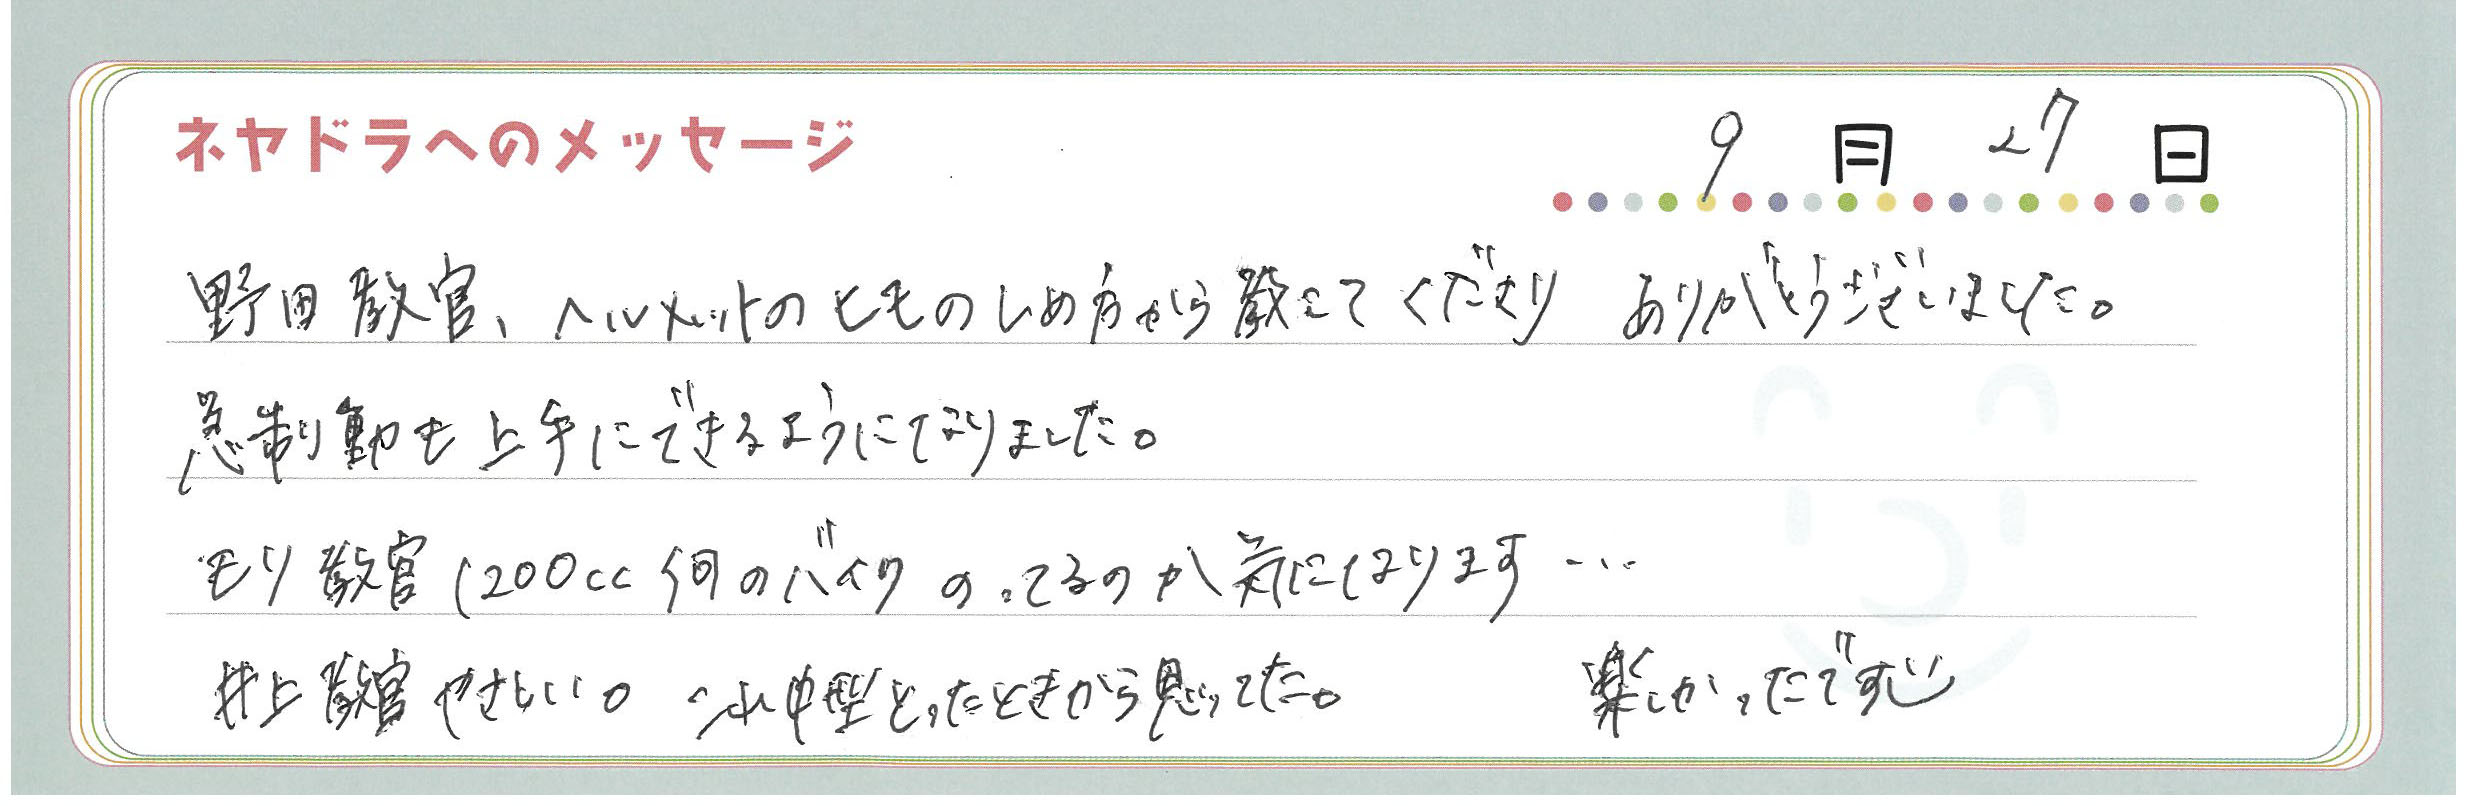 ネヤドラへのメッセージ
9月27日
野田教官、ヘルメットのヒモのしめ方から教えてくださり ありがとうございました。
急制動も上手にできるようになりました。
モリ教官1200cc何のバイクのってるのか気になります…
井上教官やさしい。 中型とったときから思ってた。 楽しかったです